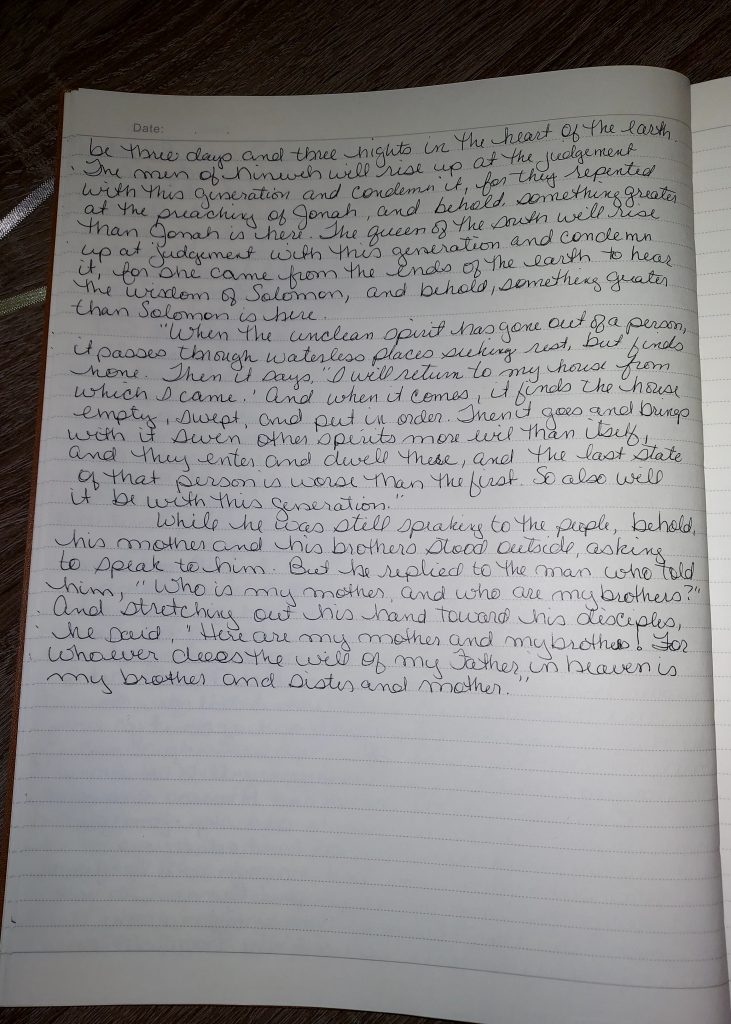 Date:
be three days and three nights in the heart of the earth.
The men of Nineveh will rise up at the judgement
with this generation and condemn it, for they repented
at the preaching of Jonah, and behold, something greater
than Jonah is here. The queen of the South will rise
up at judgement with this generation and condemn
it, for she came from the ends of the earth to hear
the wisdom of Solomon, and behold, something greater
than Solomon is here.
"When the unclean spirit has gone out of a person,
it passes through waterless places seeking rest, but finds
none. Then it says, "I will return to my house from
which I came.' And when it comes, it finds the house
empty, swept, and put in order. Then it goes and brings
with it seven other spirits more evil than itself,
and they enter and dwell there, and the last state
of that person is worse than the first. So also will
it be with this generation."
While he was still speaking to the people, behold,
his mother and his brothers stood outside, asking
to speak to him. But he replied to the man who told
him, "Who is my mother, and who are my brothers?"
And stretching out his hand toward his disciples,
he said, "Here are my mother and my brothers! For
whoever does the will of my Father in heaven is
my brother and sister and mother."